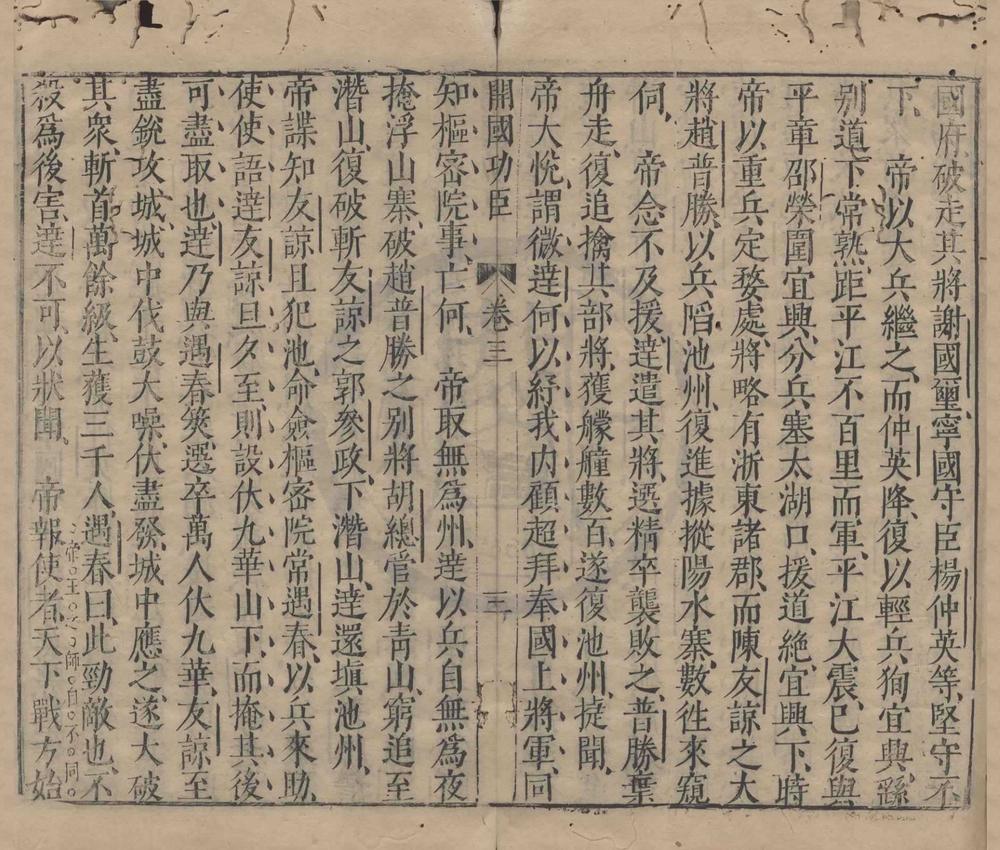 國府破走其將謝國璽寧國守臣楊仲英等堅守不
下　帝以大兵繼之而仲英降復以輕兵狥宜興繇
别道下常熟距平江不百里而軍平江大震已復與
平章邵榮圍宜興分兵塞太湖口援道絶宜興下時
帝以重兵定婺處將略有浙東諸郡而陳友諒之大
將趙普勝以兵陷池州復進據樅陽水寨數徃來窺
伺　帝念不及援達遣其將選精卒襲敗之普勝棄
舟走復追擒其部將獲艨艟數百遂復池州捷聞
帝大悅謂微達何以紓我内顧超拜奉國上將軍同
開國功臣　卷三　三
知樞宻院事亡何　帝取無為州達以兵自無為夜
掩浮山寨破趙普勝之别將胡總管於青山窮追至
潛山復破斬友諒之郭參政下潛山達還填池州
帝諜知友諒且犯池命僉樞宻院常遇春以兵來助
使使語達友諒旦夕至則設伏九華山下而掩其後
可盡取也達乃與遇春筴選卒萬人伏九華友諒至
盡銳攻城城中伐鼓大噪伏盡發城中應之遂大破
其衆斬首萬餘級生獲三千人遇春曰此勁敵也不
帝王之師自不同
殺為後害達不可以狀聞　帝報使者天下戰方始